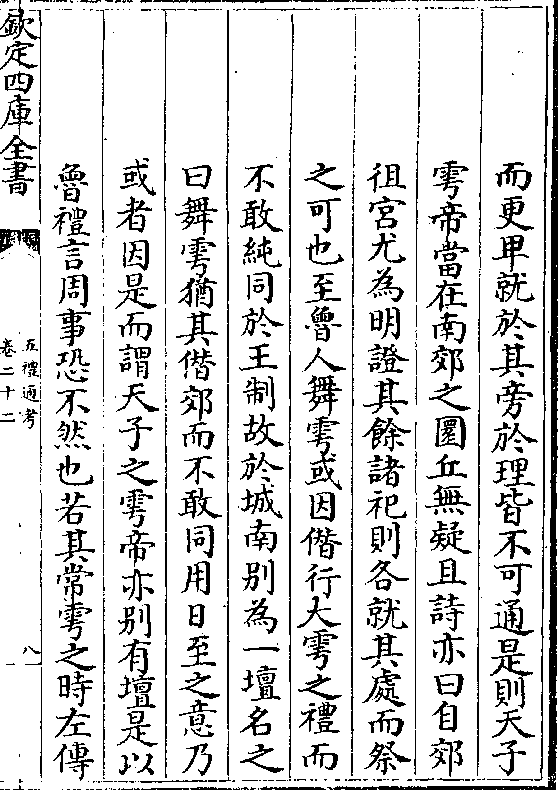 而更卑就於其旁於理皆不可通是則天子
雩帝當在南郊之圜丘無疑且詩亦曰自郊
徂宮尤為明證其餘諸祀則各就其處而祭
之可也至魯人舞雩或因僭行大雩之禮而
不敢純同於王制故於城南别為一壇名之
曰舞雩猶其僭郊而不敢同用日至之意乃
或者因是而謂天子之雩帝亦别有壇是以
魯禮言周事恐不然也若其常雩之時左傳
欽定四庫全書
五禮通考
卷二十二
八